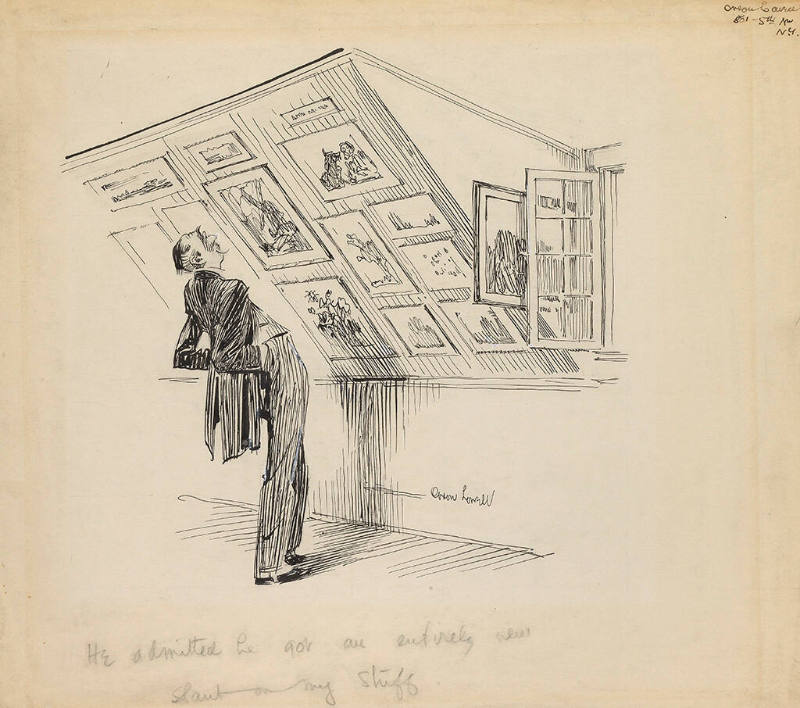 Orson Lowell
- 5th Av
N.Y.
Orson Lowell
He admitted he got an entirely new
slant on my stuff.